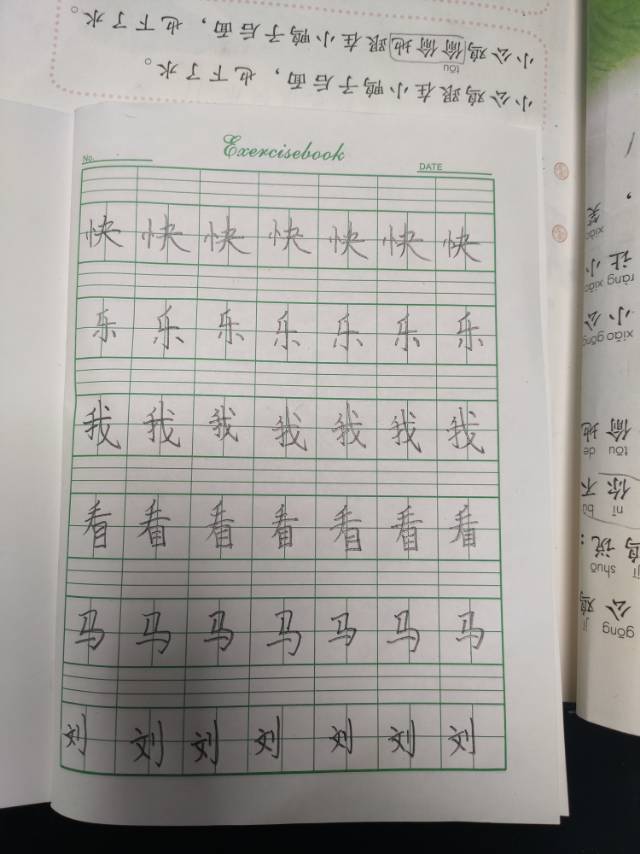 小公鸡偷偷地跟在小鸭子后面，也下了水。
tōu
小公鸡跟在小鸭子后面，也下了水。
Exercisebook
No.
DATE
快 快 快 快 快 快 快
乐 乐 乐 乐 乐 乐 乐
我 我 我 我 我 我 我
看 看 看 看 看 看 看
马 马 马 马 马 马 马
刘 刘 刘 刘 刘 刘 刘
gōng jī
公 鸡
jī shuō
鸡 说：
nǐ bù
你 不
tōu de
偷 地
xiǎo gōng
小 公
ràng xiǎo
让 小
xiào
笑